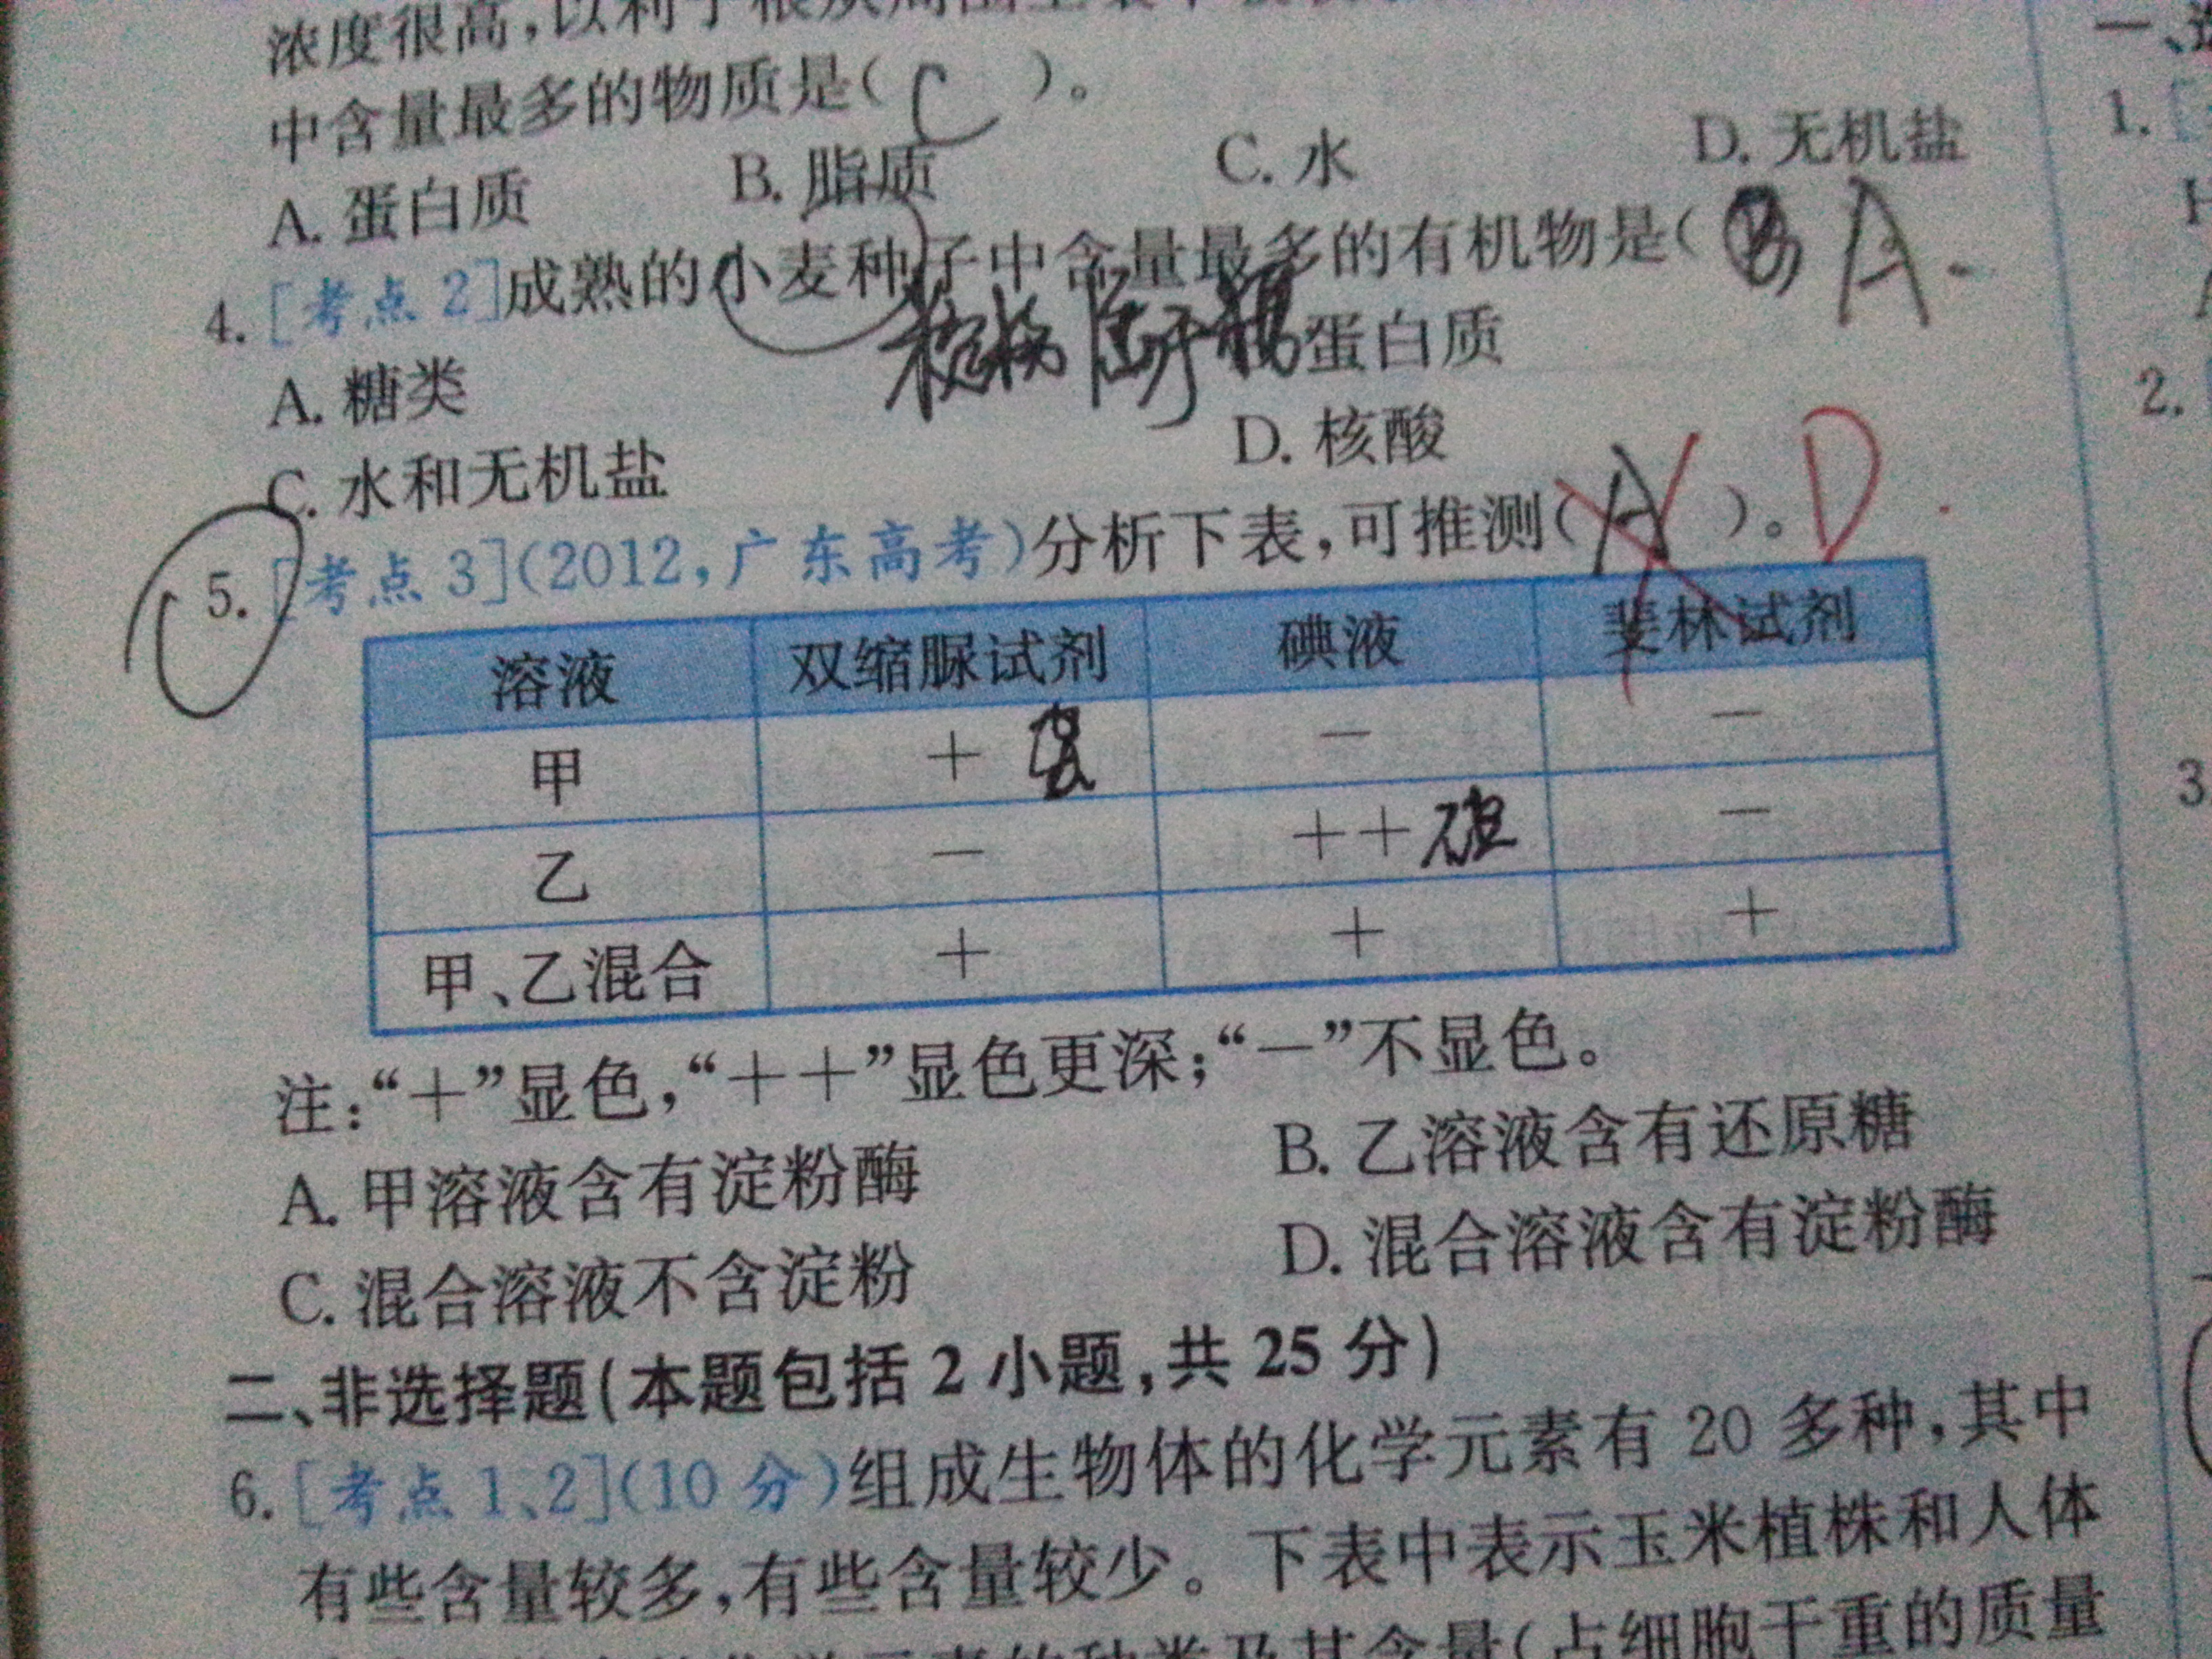 浓度很高,以利于根从周围土壤中
中含量最多的物质是( C )。
A. 蛋白质 B. 脂质 C. 水 D. 无机盐
4. [考点 2]成熟的小麦种子中含量最多的有机物是( B A.
A. 糖类 蛋白质
C. 水和无机盐 D. 核酸
5. [考点 3](2012,广东高考)分析下表,可推测( A )。 D
溶液 双缩脲试剂 碘液 斐林试剂
甲 + 蛋 - -
乙 - ++ -
甲、乙混合 + + +
注:“+”显色,“++”显色更深;“-”不显色。
A. 甲溶液含有淀粉酶 B. 乙溶液含有还原糖
C. 混合溶液不含淀粉 D. 混合溶液含有淀粉酶
二、非选择题(本题包括 2 小题,共 25 分)
6. [考点 1、2](10 分)组成生物体的化学元素有 20 多种,其中
有些含量较多,有些含量较少。下表中表示玉米植株和人体
的种类及其含量(占细胞干重的质量
一、选
1. [
2.
3